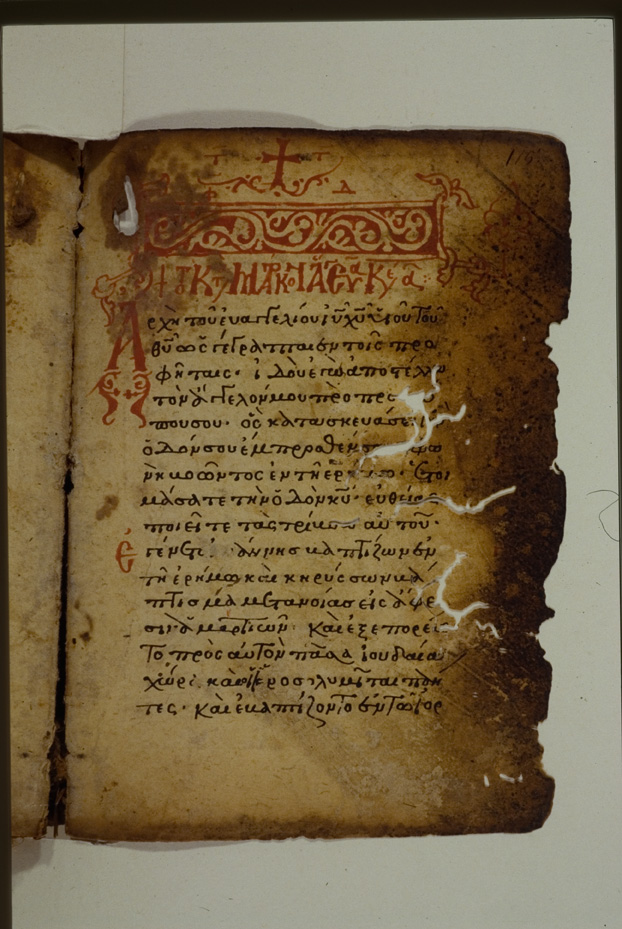 Αρχὴ τοῦ ευαγγελίου ιυ χυ υιου του
θυ ὡς γέγραπται ἐν τοῖς προ
φήταις· ἰδοὺ ἐγὼ ἀποστέλλω
τὸν ἄγγελόν μου πρὸ προσ
ώπου σου· ὃς κατασκευάσει
ὁδόν σου ἔμπροσθέν σου φω
νὴ βοῶντος ἐν τῆ ἐρήμω· Ἑτοι
μάσατε τὴν ὁδὸν κυ· εὐθείας
ποιεῖτε τὰς τρίβους αὐτοῦ·
Ἐγένετο ἰωάννης βαπτίζων ἐν
τῆ ἐρήμω καὶ κηρύσσων βά
πτισμα μετανοίας εἰς ἄφε
σιν ἁμαρτιῶν· Καὶ ἐξεπορεύε
το πρὸς αὐτὸν πᾶσα ἡ ἰουδαία
χώρα, καὶ οἱ ἱεροσολυμῖται πάν
τες· καὶ ἐβαπτίζοντο ἐν τῶ ἰορ